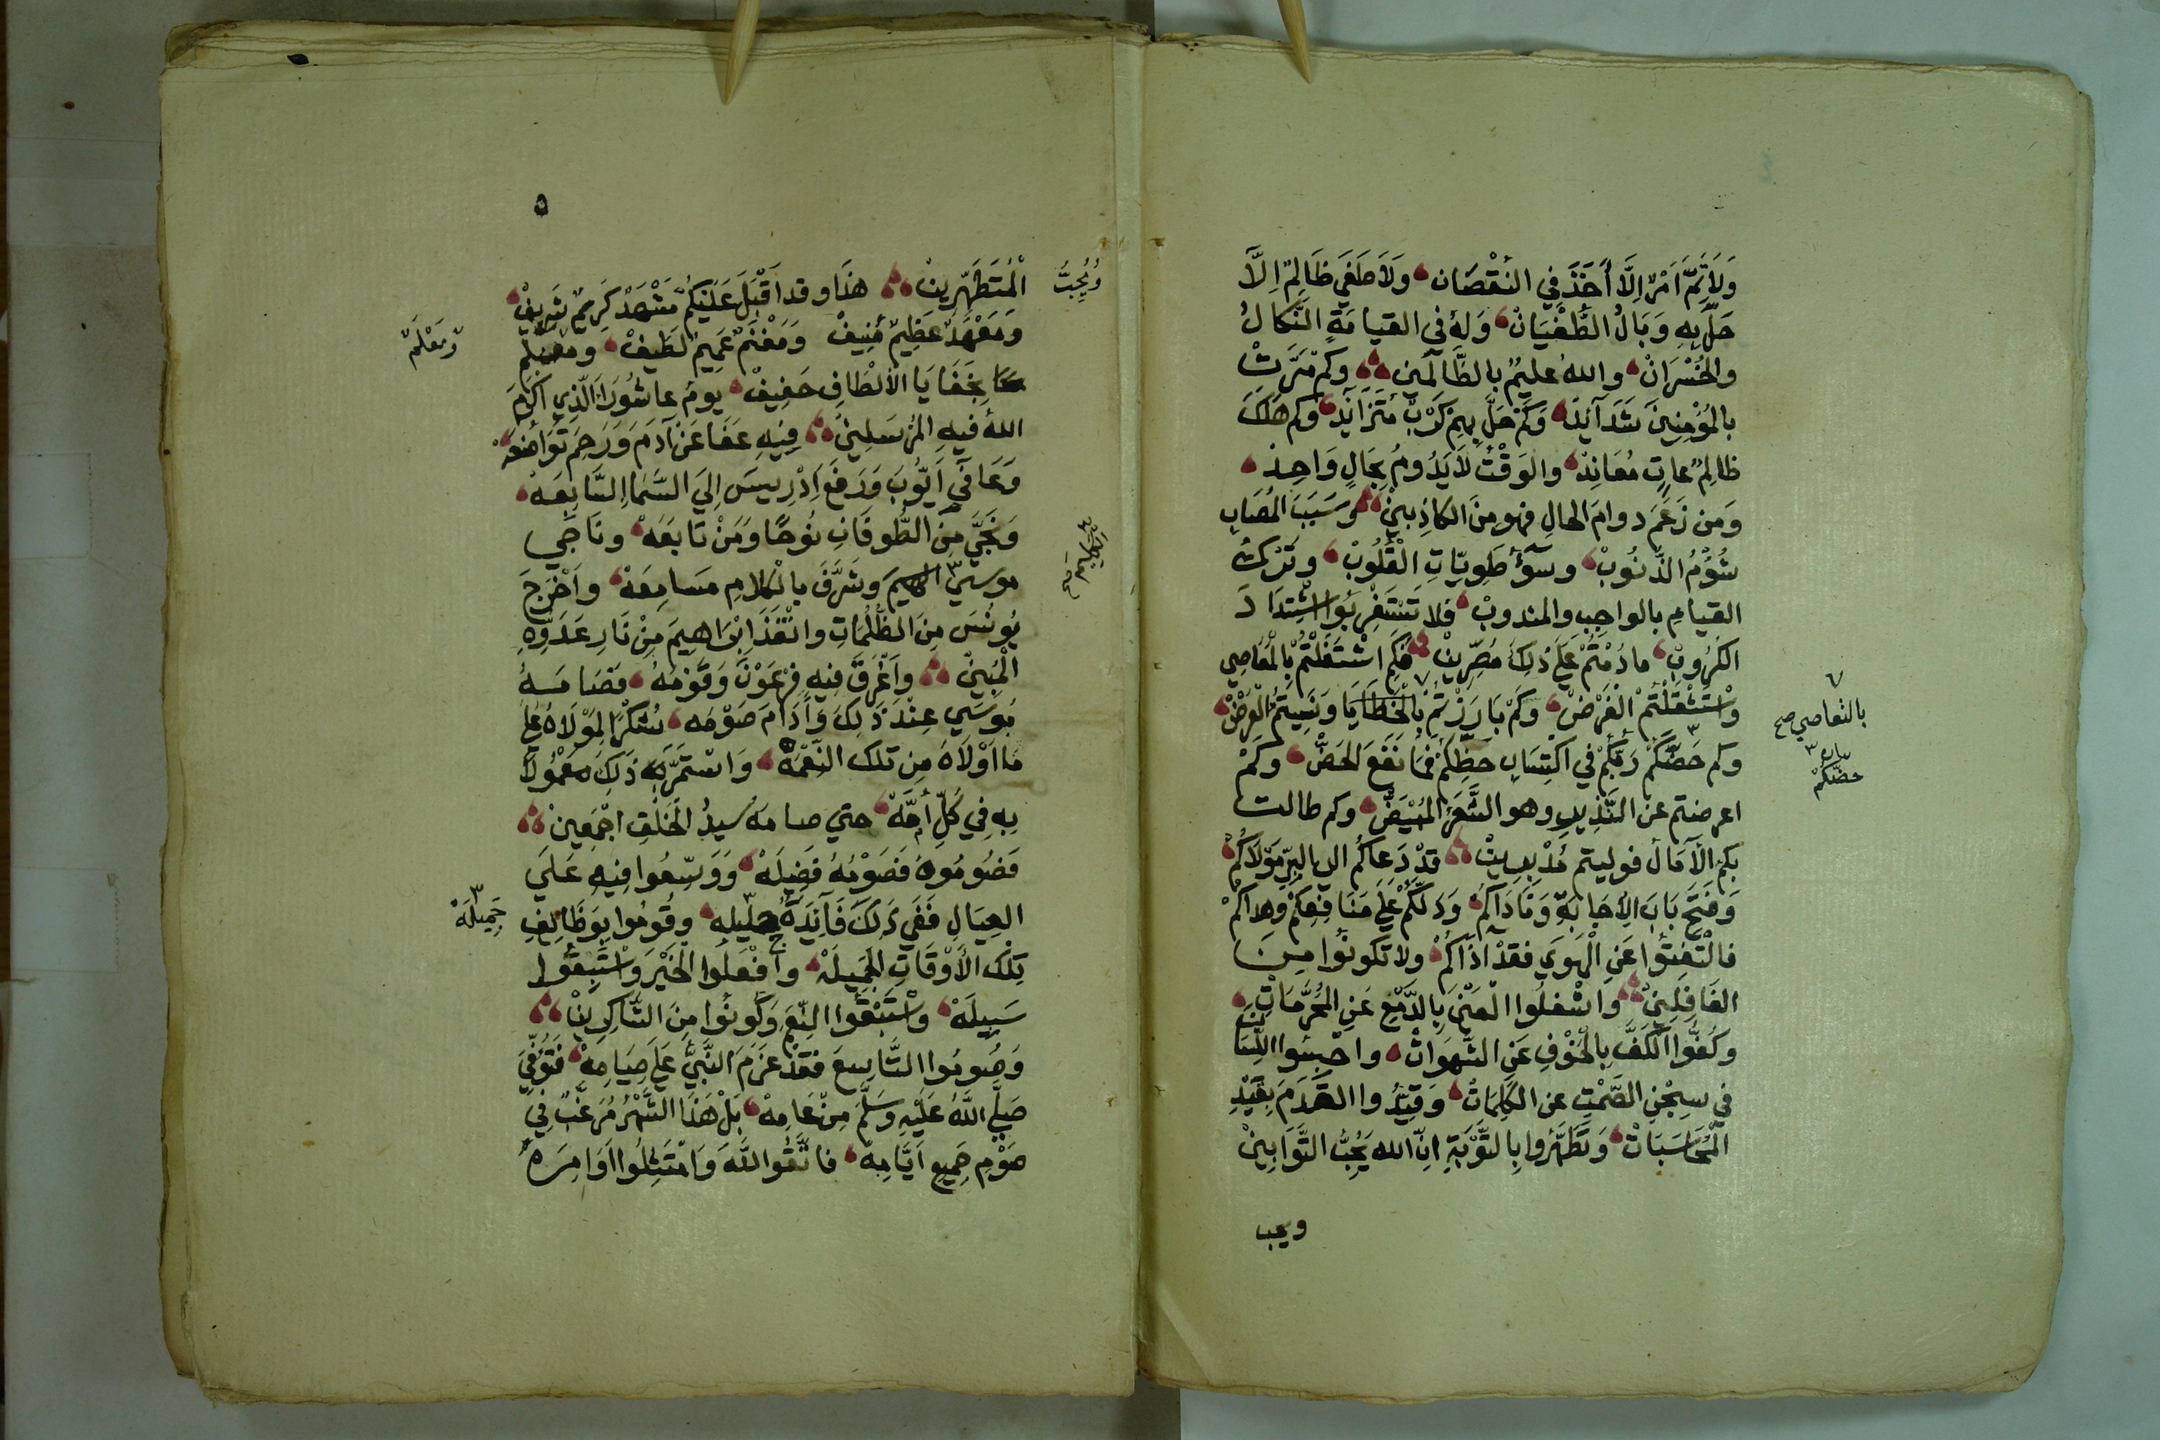 وَلَا تَمَّ اَمْرٌ اِلَّا أَخَذَ فِي النُقْصَان وَلَا طَغَي ظَالِمٌ اِلَّا
حَلَّ بِهِ وَبَالُ الطُّغْيَانْ وَلَهُ في القيامَةِ النَّكَالُ
والخُسْرَانْ والله عليمٌ بالظَّالمين وكَمْ مَرَّتْ
بالمُؤمِنِينَ شَدَآيَدْ وَكَمْ حَلَّ بِهِمْ كَرْبٌ مُتَزَايَدْ وكم هَلَكَ
ظالِمٌ عاتٍ مُعَانِدْ والوَقْتُ لَا يَدُومُ بحَالٍ وَاحِدْ
وَمن زَعَمَ دوامَ الحالِ فهو منَ الكاذِبينْ وسَبَبَ المُصَابِ
شُؤْمُ الذُّنُوبْ وسَوُٓءُ طَوِيَّاتِ القُلُوبْ وتَرْكُ
القيامِ بالواجِبِ والمندوبْ فلا تَسْتَغْرِبُوا اشْتِدَادَ
الكُرُوبْ ما دُمْتُمْ عَلَي ذلِكَ مُصِرِّينْ فَكَمِ اشْتَغَلْتُمْ بِالْمَعَاصِي
وَاسْتَثْقَلْتُمْ الْفَرَضْ وكَمْ بَارَزْتُمْ بالْخَطَايَا وَنَسِيتُمُ الْعَرْضْ
وكم حَضَّكُمْ رَبُّكُمْ في اكْتِسَابِ حظِّكُمْ فَمَا نَفَعَ الحَضّْ وكَمْ
اعرضتم عن النَّذِيرِ وهو الشَّعَرُ المُبْيَضّْ وكم طالت
بكم الآمَالُ فوليتم مُدْبِرِينْ قَدْ دَعاكُم الي البِرِّ مَوْلَاكُمْ
وَفَتَحَ بَابَ الِاجَابَةِ وَنَادَاكُمْ وَدَلَّكُمْ عَلَي مَنَافِعِكُمْ وهداكُمْ
فالْتَفِتُوا عَنِ الْهَوَي فقدْ اذَاكُمْ ولا تكونُوا مِنَ
الغَافِلِينْ واشْغلُوا الْعَيْنَ بِالدَّمْعِ عَنِ المُحَرَّمَاتْ
وكُفُّوا الكَفَّ بِالْخَوْفِ عَنِ الشَّهَوَاتْ واحْبِسُوا اللِّسَانَ
في سِجْنِ الصَّمْتِ عن الكَلِمَاتْ وَقَيِّدُوا القَدَمَ بِقَيْدِ
الْمُحَاسَبَاتْ وَتَطَهَّرُوا بِالتَّوْبَةِ اِنَّ الله يُحِبُّ التَّوَّابِينْ
ويحب
بالمعاصي صح
حضّكُمْ
٥
وَيُحِبُّ
الْمُتَطَهِّرِينْ هذَا وقد اَقْبَلَ عَلَيْكُمْ مَشْهَدٌ كَرِيمٌ شَرِيفْ
وَمَعْهَدٌ عَظِيمٌ مُنِيفْ وَمَغْنَمٌ عَمِيمٌ لَطِيفْ ومعلم
بِخَفَايَا الأَلْطَافِ حَفِيفْ يومُ عاشُورَاَ الَّذِي اكْرَمَ
اللهُ فيهِ المُرْسَلِينْ فِيهِ عَفَا عَنْ آدَمَ وَرَحِمَ تَوَاضُعَهْ
وَعَافَي اَيُّوبَ وَرَفَعَ اِدْرِيسَ اِلَي السَّمَاءِ السَّابِعَهْ
وَنَجَّي مِنَ الطُّوفَانِ نُوحًا وَمَنْ تَابَعَهْ ونَاجَي
موسَي وشَرَّفَ بالكلامِ مَسَامِعَهْ واَخْرَجَ
يُونُسَ مِنَ الظُّلُمَاتِ وانْقَذَ اِبْرَاهِيمَ مِنْ نَارِ عَدُوِّهِ
الْمُبِينْ واَغْرَقَ فيهِ فِرْعَوْنَ وَقَوْمَهُ فَصَامَهُ
مُوسَي عِنْدَ ذَلِكَ وَأَدَامَ صَوْمَه شُكْرًا لِمَوْلَاهُ عَلَي
مَا اَوْلَاهُ مِن تلكَ النِّعْمَهْ وَاسْتَمَرَّ ذَلِكَ مَعْمُولًا
بِهِ فِي كُلِّ أُمَّهْ حتي صامَهُ سَيدُ الْخَلْقِ اجْمَعِينْ
فَصُومُوهُ فَصَوْمُهُ فَضِيلَهْ وَوَسِّعُوا فِيهِ عَلَي
العِيَالِ فَفَي ذَلِكَ فَآئِدَةٌ وقُومُوا بِوَظَائِفِ
تِلْكَ الأَوْقَاتِ الجَمِيلَهْ وافْعَلُوا الخَيْرَ وَاسْتَبِقُوا
سَبِيلَهْ وَاسْتَبْقُوا النِّعَمِ وَكُونُوا مِنَ الشَّاكِرِينْ
وَصُومُوا التَّاسِعَ فقدْ عَزَمَ النَّبيُّ عَلَي صِيَامِهْ فَتُوُفِّيَ
صَلَّي اللَّهُ عَلَيْهِ وسَلَّمَ مِنْ عَامِهْ بَلْ هَذَا الشَّهْرُ مُرَغَّبٌ فِي
صَوْمِ جَمِيعِ اَيَّامِهْ فاتَّقُوا اللَّهَ وَامْتَثِلُوا اَوَامِرَهُ
وَمَعْلَمٌ
جَمِيلَهْ